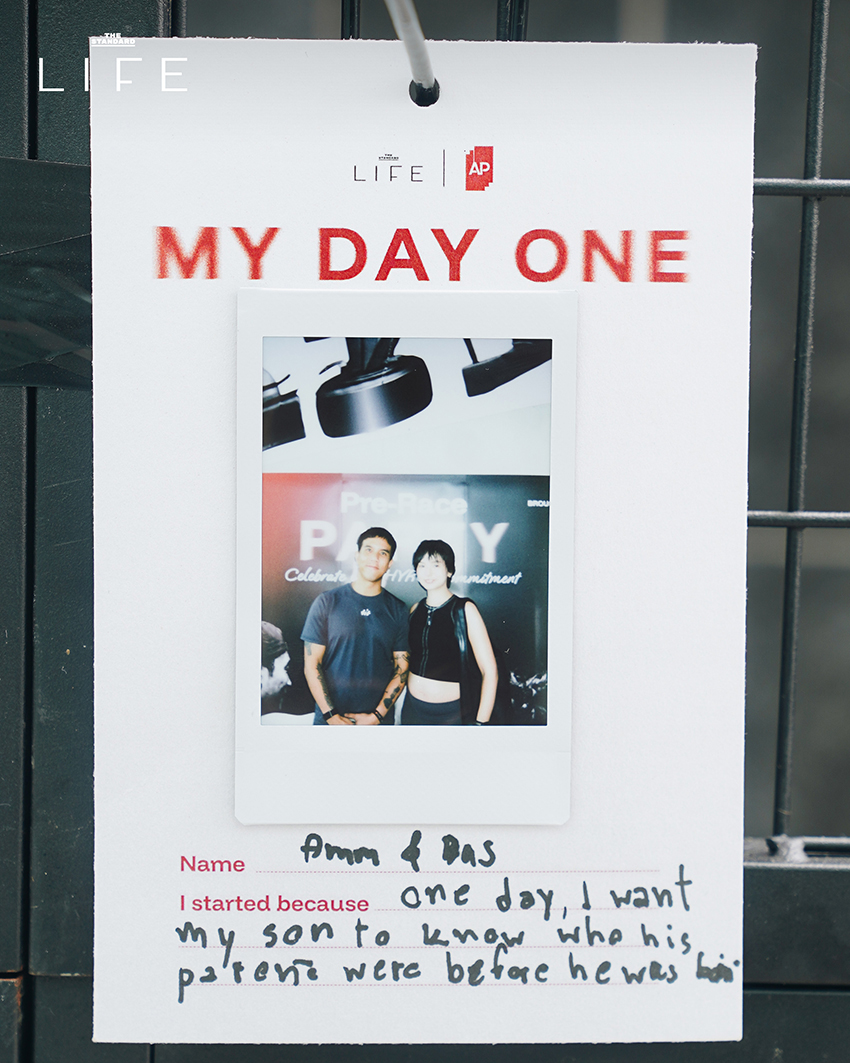 THE STANDARD
LIFE
THE STANDARD
LIFE | AP
MY DAY ONE
Pre-Race
PA Y
BROU
Celebrate mmitment
Name Amm & Bas
I started because one day, I want
my son to know who his
parents were before he was born